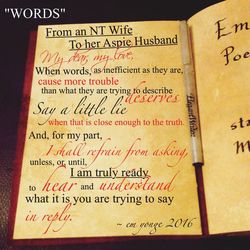 "WORDS"
From an NT Wife
To her Aspie Husband
My dear, my love,
When words, as inefficient as they are,
cause more trouble
than what they are trying to describe
deserves
Say a little lie
when that is close enough to the truth.
And, for my part,
I shall refrain from asking,
unless, or until,
I am truly ready
to hear and understand
what it is you are trying to say
in reply.
~ em yonge 2016
Em
Poe